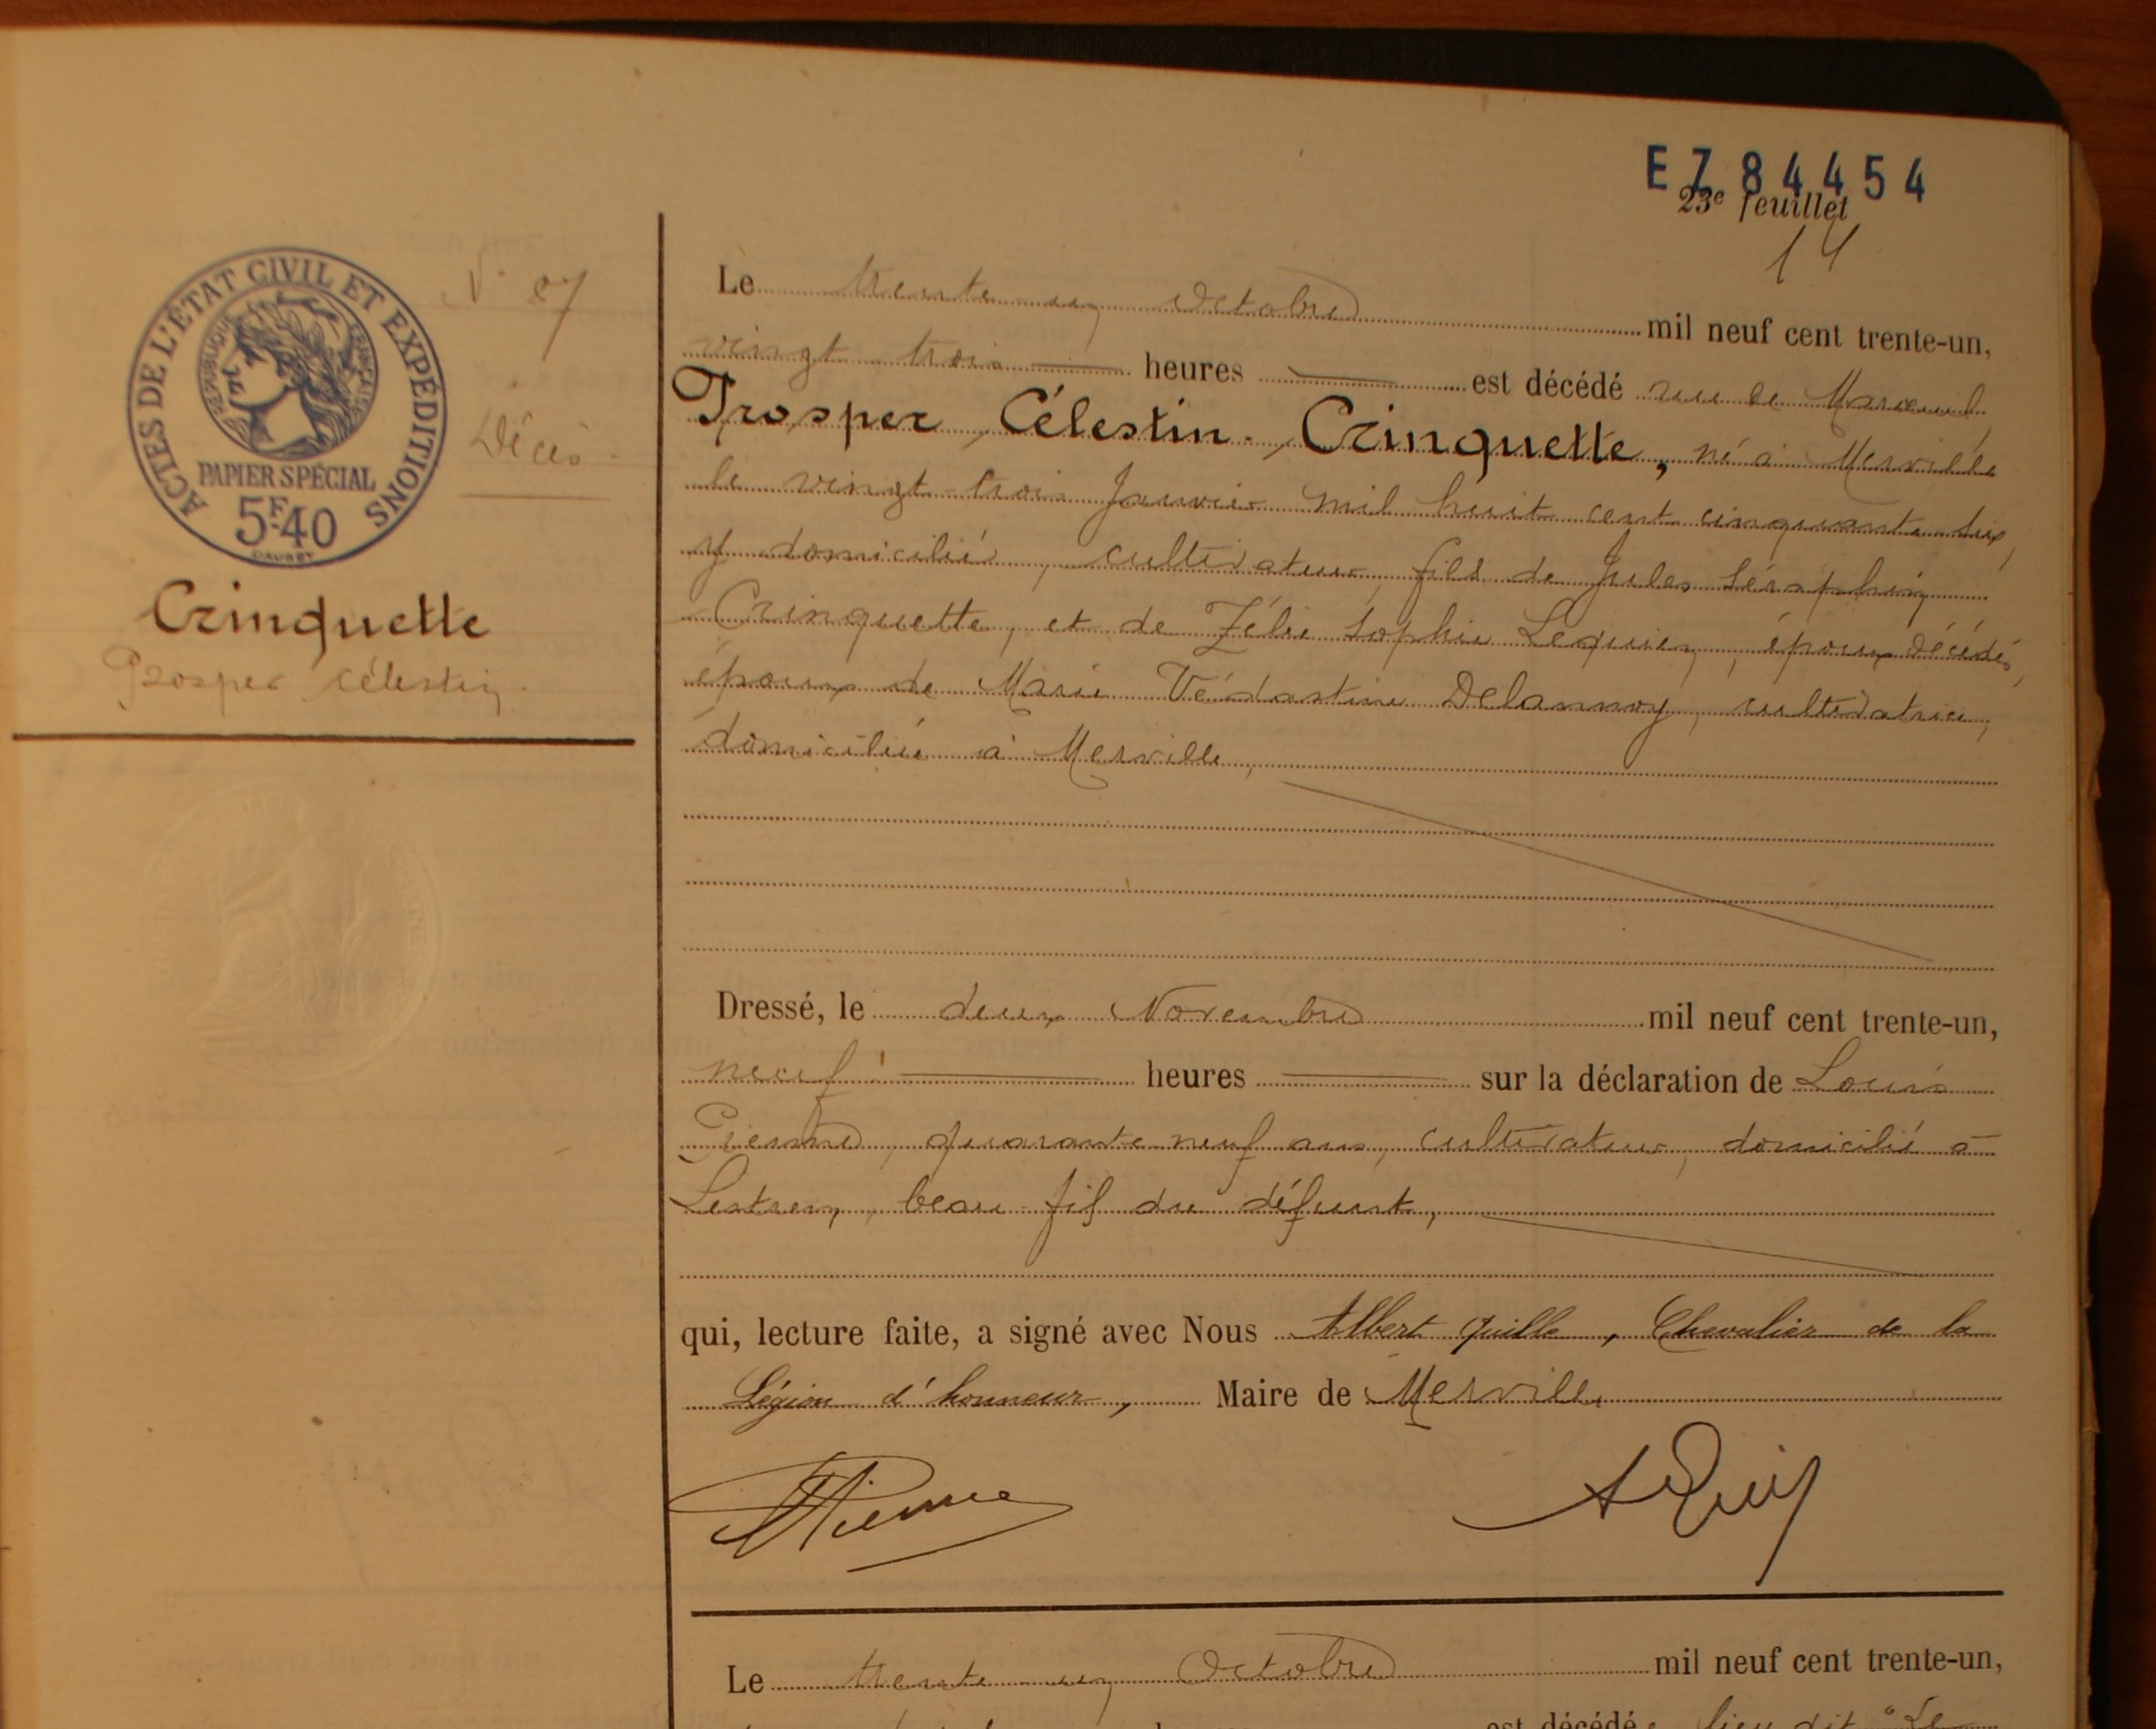 E 784454
23e feuillet
14
ACTES DE L'ÉTAT CIVIL ET EXPÉDITIONS
RÉPUBLIQUE FRANÇAISE
PAPIER SPÉCIAL
5F.40
N° 87
Décès
Crinquette
Prosper Célestin
Le trente un Octobre mil neuf cent trente-un,
vingt trois heures est décédé rue de
Prosper, Célestin, Crinquette, né à Merville
le vingt-trois Janvier mil huit cent cinquante deux,
y domicilié, cultivateur, fils de Jules Séraphin
Crinquette, et de Zélie Sophie Lequien, époux décédés,
époux de Marie Védastine Delannoy, cultivatrice,
domiciliée à Merville,
Dressé, le deux Novembre mil neuf cent trente-un,
neuf heures sur la déclaration de Louis
Pierme, quarante neuf ans, cultivateur, domicilié à
Lestrem, beau-fils du défunt,
qui, lecture faite, a signé avec Nous Albert Quille, Chevalier de la
Légion d'honneur, Maire de Merville
Le trente un Octobre mil neuf cent trente-un,
est décédé lieu dit "Le